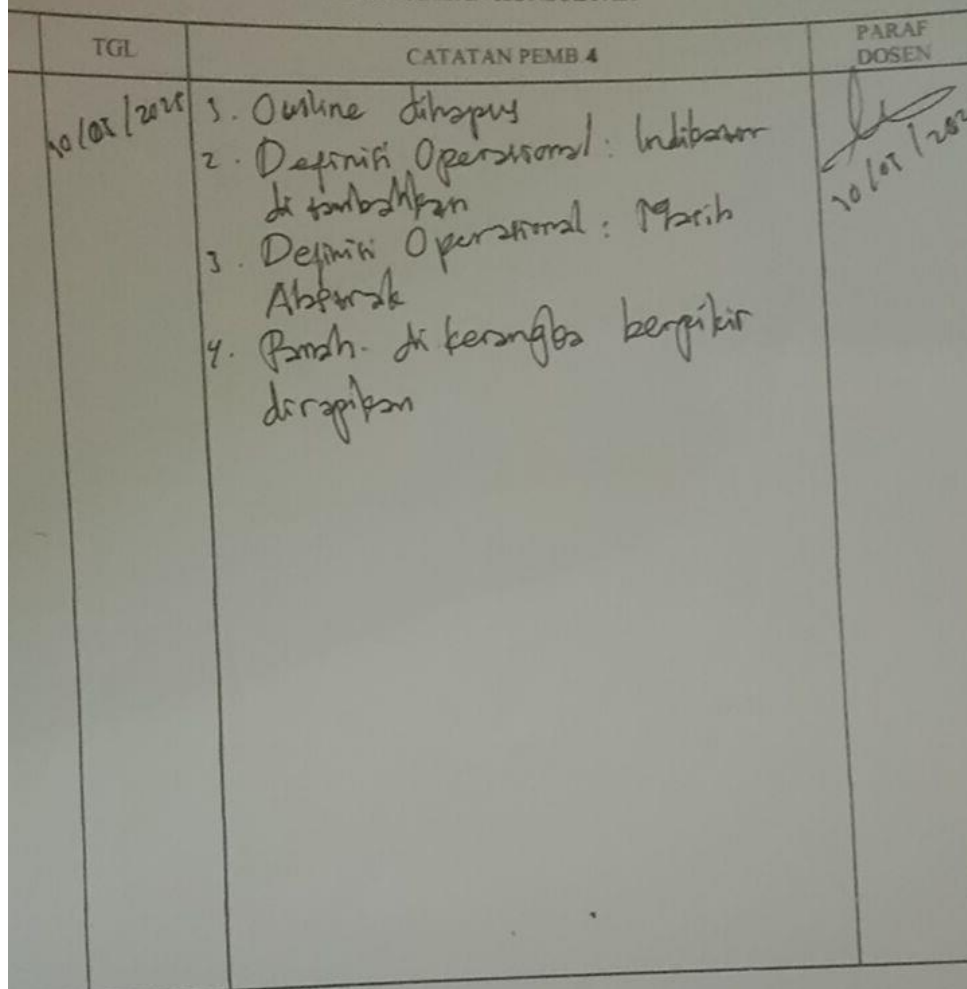 TGL
CATATAN PEMB 4
PARAF
DOSEN
1. Outline dihapus
2. Definisi Operasional: Indikator
ditambahkan
3. Definisi Operasional: Masih
Abstrak
4. Panah. di kerangka berpikir
dirapikan